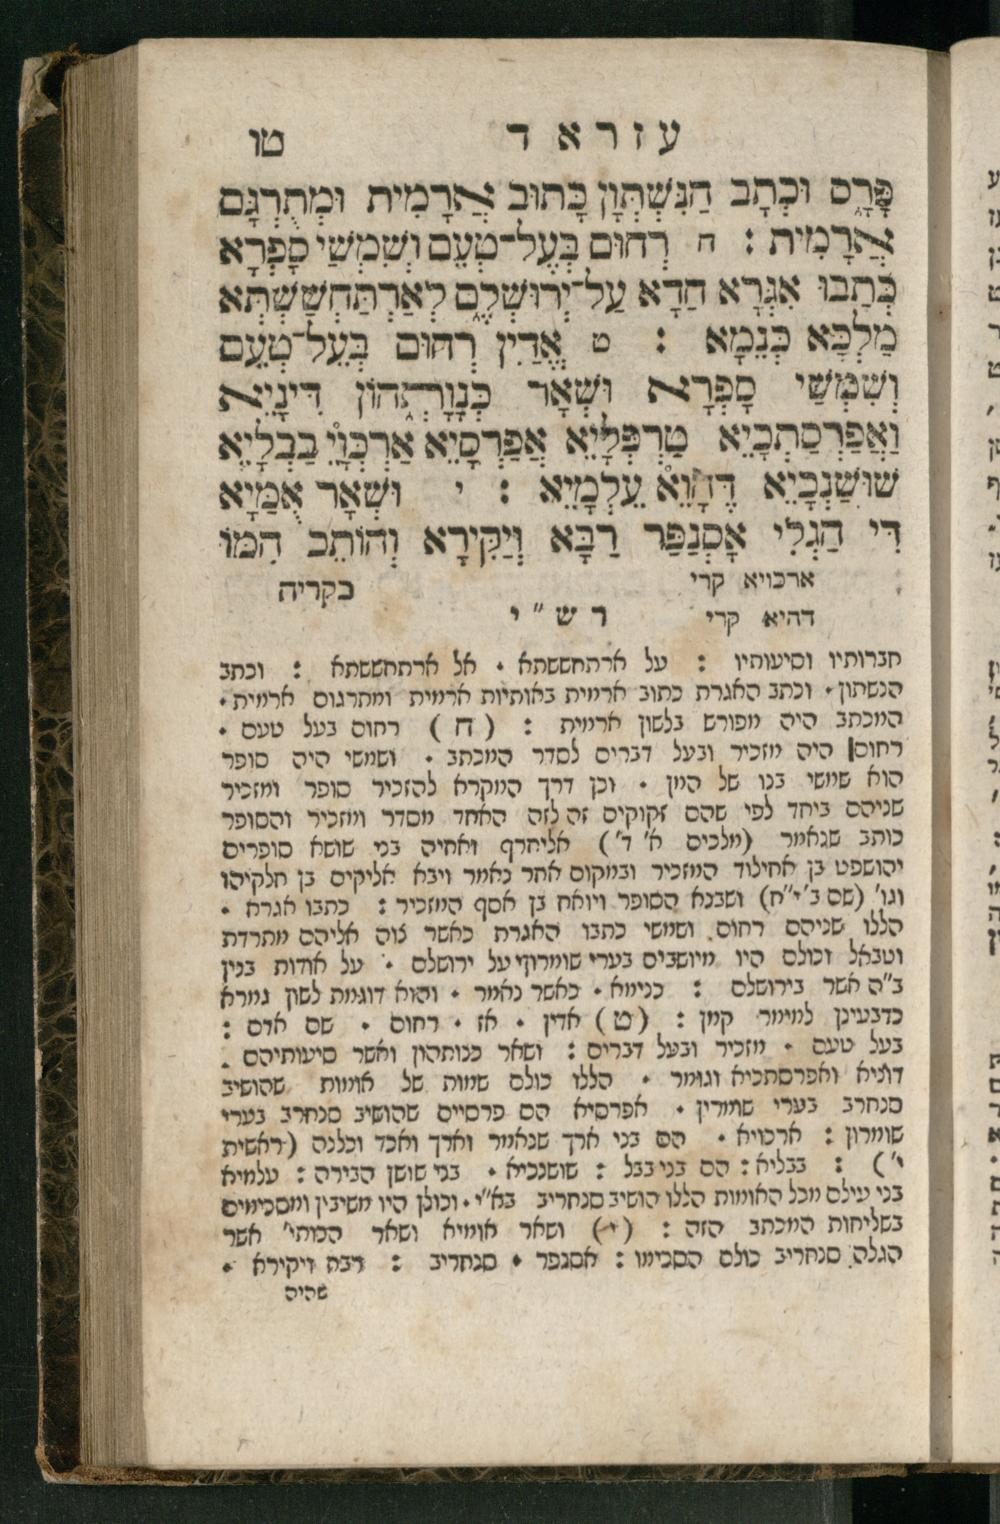 עזרא ד טו
פָּרָס וּכְתָב הַנִּשְׁתְּוָן כָּתוּב אֲרָמִית וּמְתֻרְגָּם
אֲרָמִית : ח רְחוּם בְּעֵל־טְעֵם וְשִׁמְשַׁי סָפְרָא
כְּתַבוּ אִגְּרָא חֲדָא עַל־יְרוּשְׁלֶם לְאַרְתַּחְשַׁשְׂתְּא
מַלְכָּא כְּנֵמָא : ט אֱדַיִן רְחוּם בְּעֵל־טְעֵם
וְשִׁמְשַׁי סָפְרָא וּשְׁאָר כְּנָוָתְהוֹן דִּינָיֵא
וַאֲפַרְסַתְכָיֵא טַרְפְּלָיֵא אֲפָרְסָיֵא אַרְכְּוָיֵ בָבְלָיֵא
שׁוּשַׁנְכָיֵא דֶּהָוֵא עֵלְמָיֵא : י וּשְׁאָר אֻמַּיָּא
דִּי הַגְלִי אָסְנַפַּר רַבָּא וְיַקִּירָא וְהוֹתֵב הִמּוֹ
ארכויא קרי בקריה
דהיא קרי רש״י
חברותיו וסיעותיו : על ארתחששתא ٠ אל ארתחששתא : וכתב
הנשתון ٠ וכתב האגרת כתוב ארמית באותיות ארמית ומתרגום ארמית ٠
המכתב היה מפורש בלשון ארמית : (ח) רחום בעל טעם ٠
רחום היה מזכיר ובעל דברים לסדר המכתב ٠ ושמשי היה סופר
הוא שמשי בנו של המן ٠ וכן דרך המקרא להזכיר סופר ומזכיר
שניהם ביחד לפי שהם זקוקים זה לזה האחד מסדר ומזכיר והסופר
כותב שנאמר (מלכים א׳ ד׳) אליחרף ואחיה בני שושא סופרים
יהושפט בן אחילוד המזכיר ובמקום אחר נאמר ויבא אליקים בן חלקיהו
וגו׳ (שם ב׳ י״ח) ושבנא הסופר ויואח בן אסף המזכיר : כתבו אגרא ٠
הללו שניהם רחום ושמשי כתבו האגרת כאשר צוה אליהם מתרדת
וטבאל וכולם היו מיושבים בערי שומרון על ירושלם ٠ על אודות בנין
ב״ה אשר בירושלם : כנימא ٠ כאשר נאמר ٠ והוא דוגמת לשון גמרא
כדבעינן למימר קמן : (ט) אדין ٠ אז ٠ רחום ٠ שם אדם :
בעל טעם ٠ מזכיר ובעל דברים : ושאר כנותהון ואשר סיעותיהם ٠
דוניא ואפרסתכיא וגומר ٠ הללו כולם שמות של אומות שהושיב
סנחרב בערי שומרין ٠ אפרסיא הם פרסיים שהושיב סנחרב בערי
שומרון : ארכויא ٠ הם בני ארך שנאמר וארך ואכד וכלנה (ראשית
י׳) : בבליא : הם בני בבל : שושנכיא ٠ בני שושן הבירה : עלמיא
בני עילם מכל האומות הללו הושיב סנחריב בא״י ٠ וכולן היו משיבין ומסכימים
בשליחות המכתב הזה : (י) ושאר אומיא ושאר הכותי׳ אשר
הגלה סנחריב כולם הסכימו : אסנפר ٠ סנחריב : רבא ויקירא ٠
שהיה